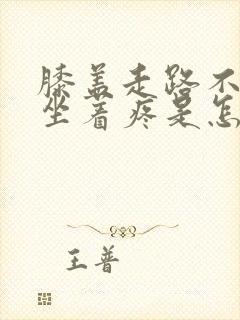 膝盖走路不
坐着疼是怎
王普